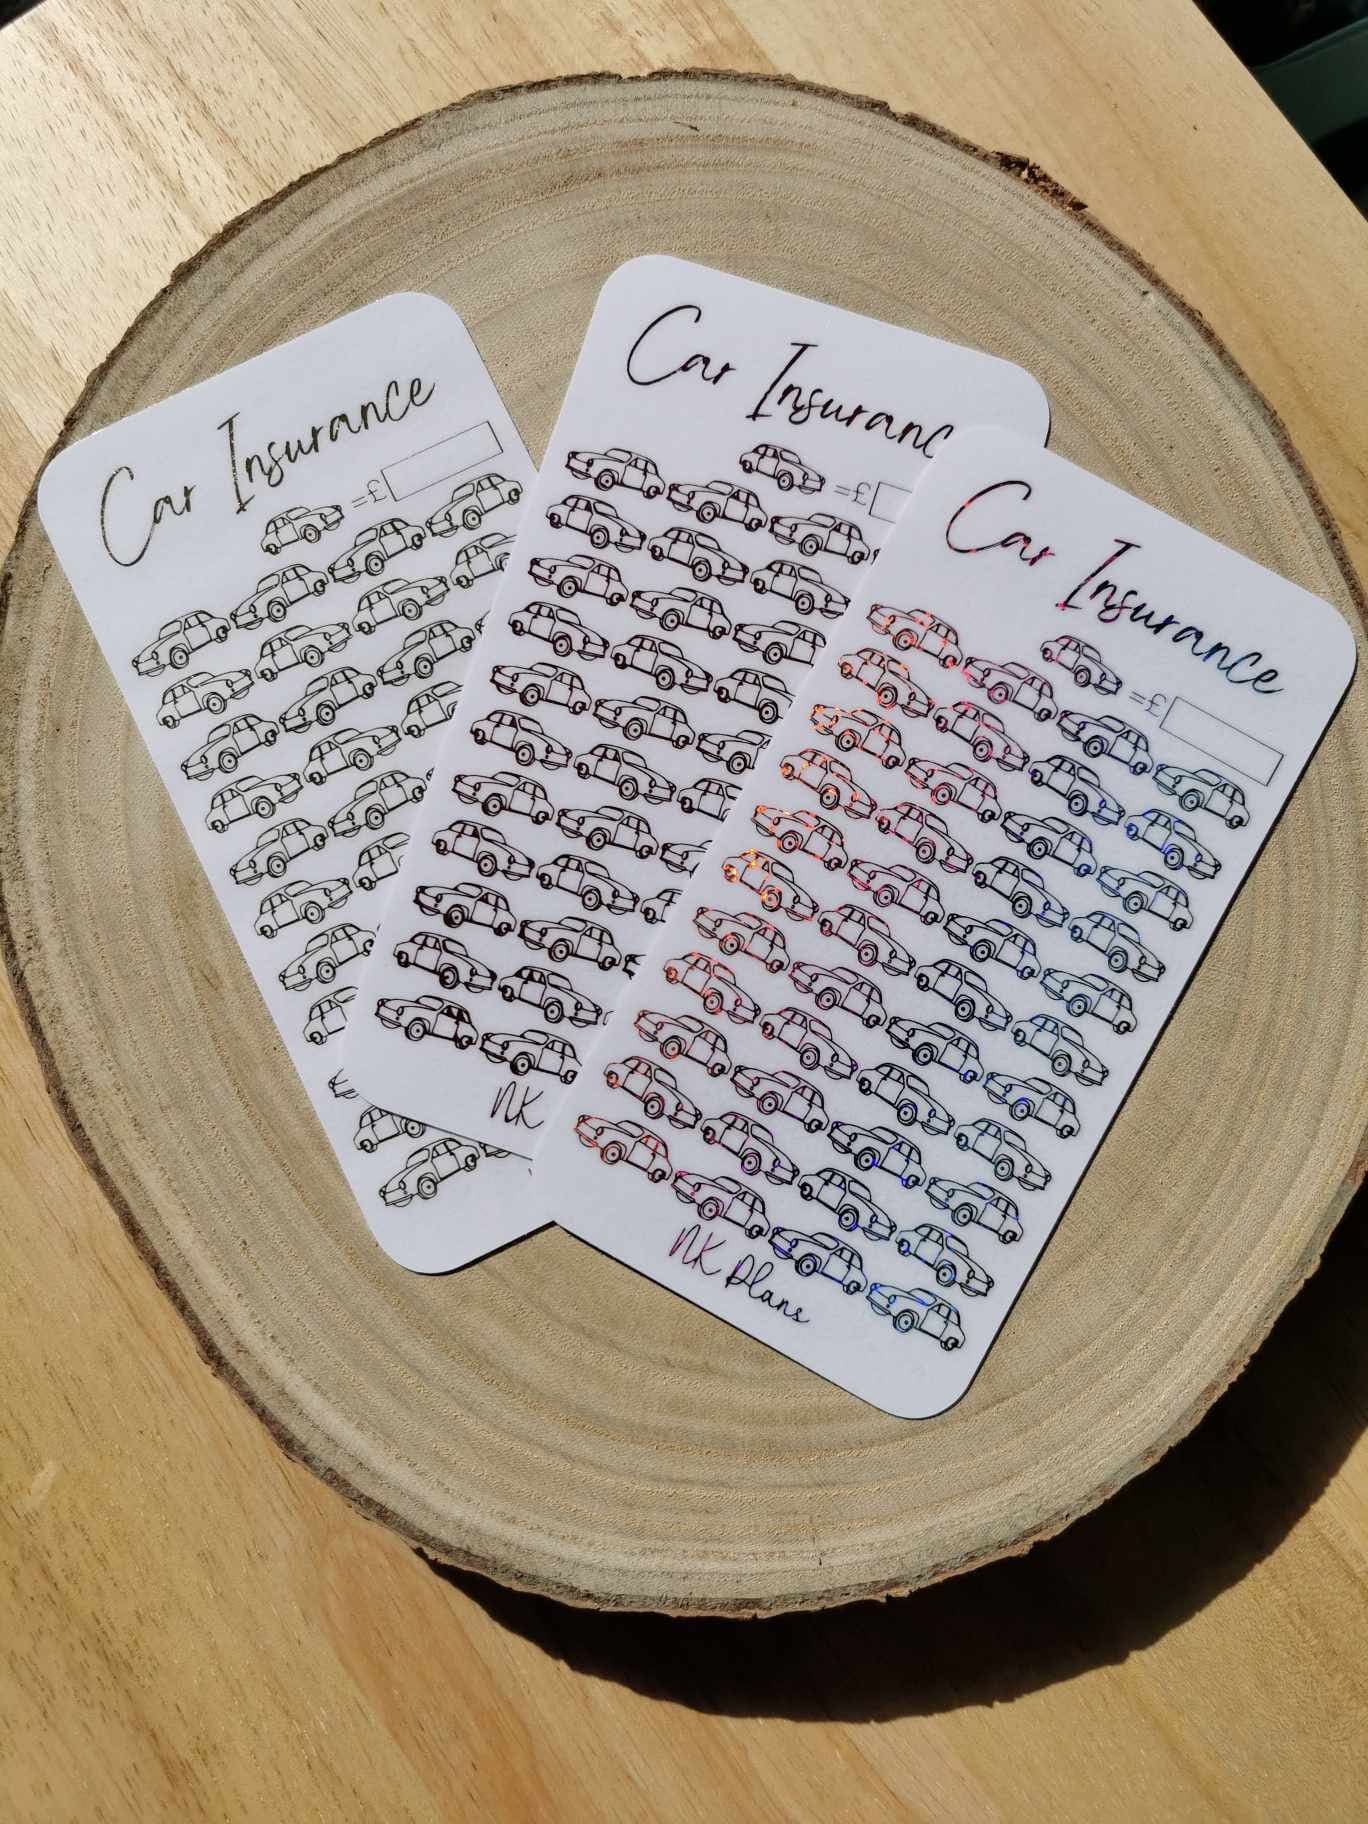 Car Insurance
=£
Car Insuranc
=£
NK
Car Insurance
=£
NK Plans